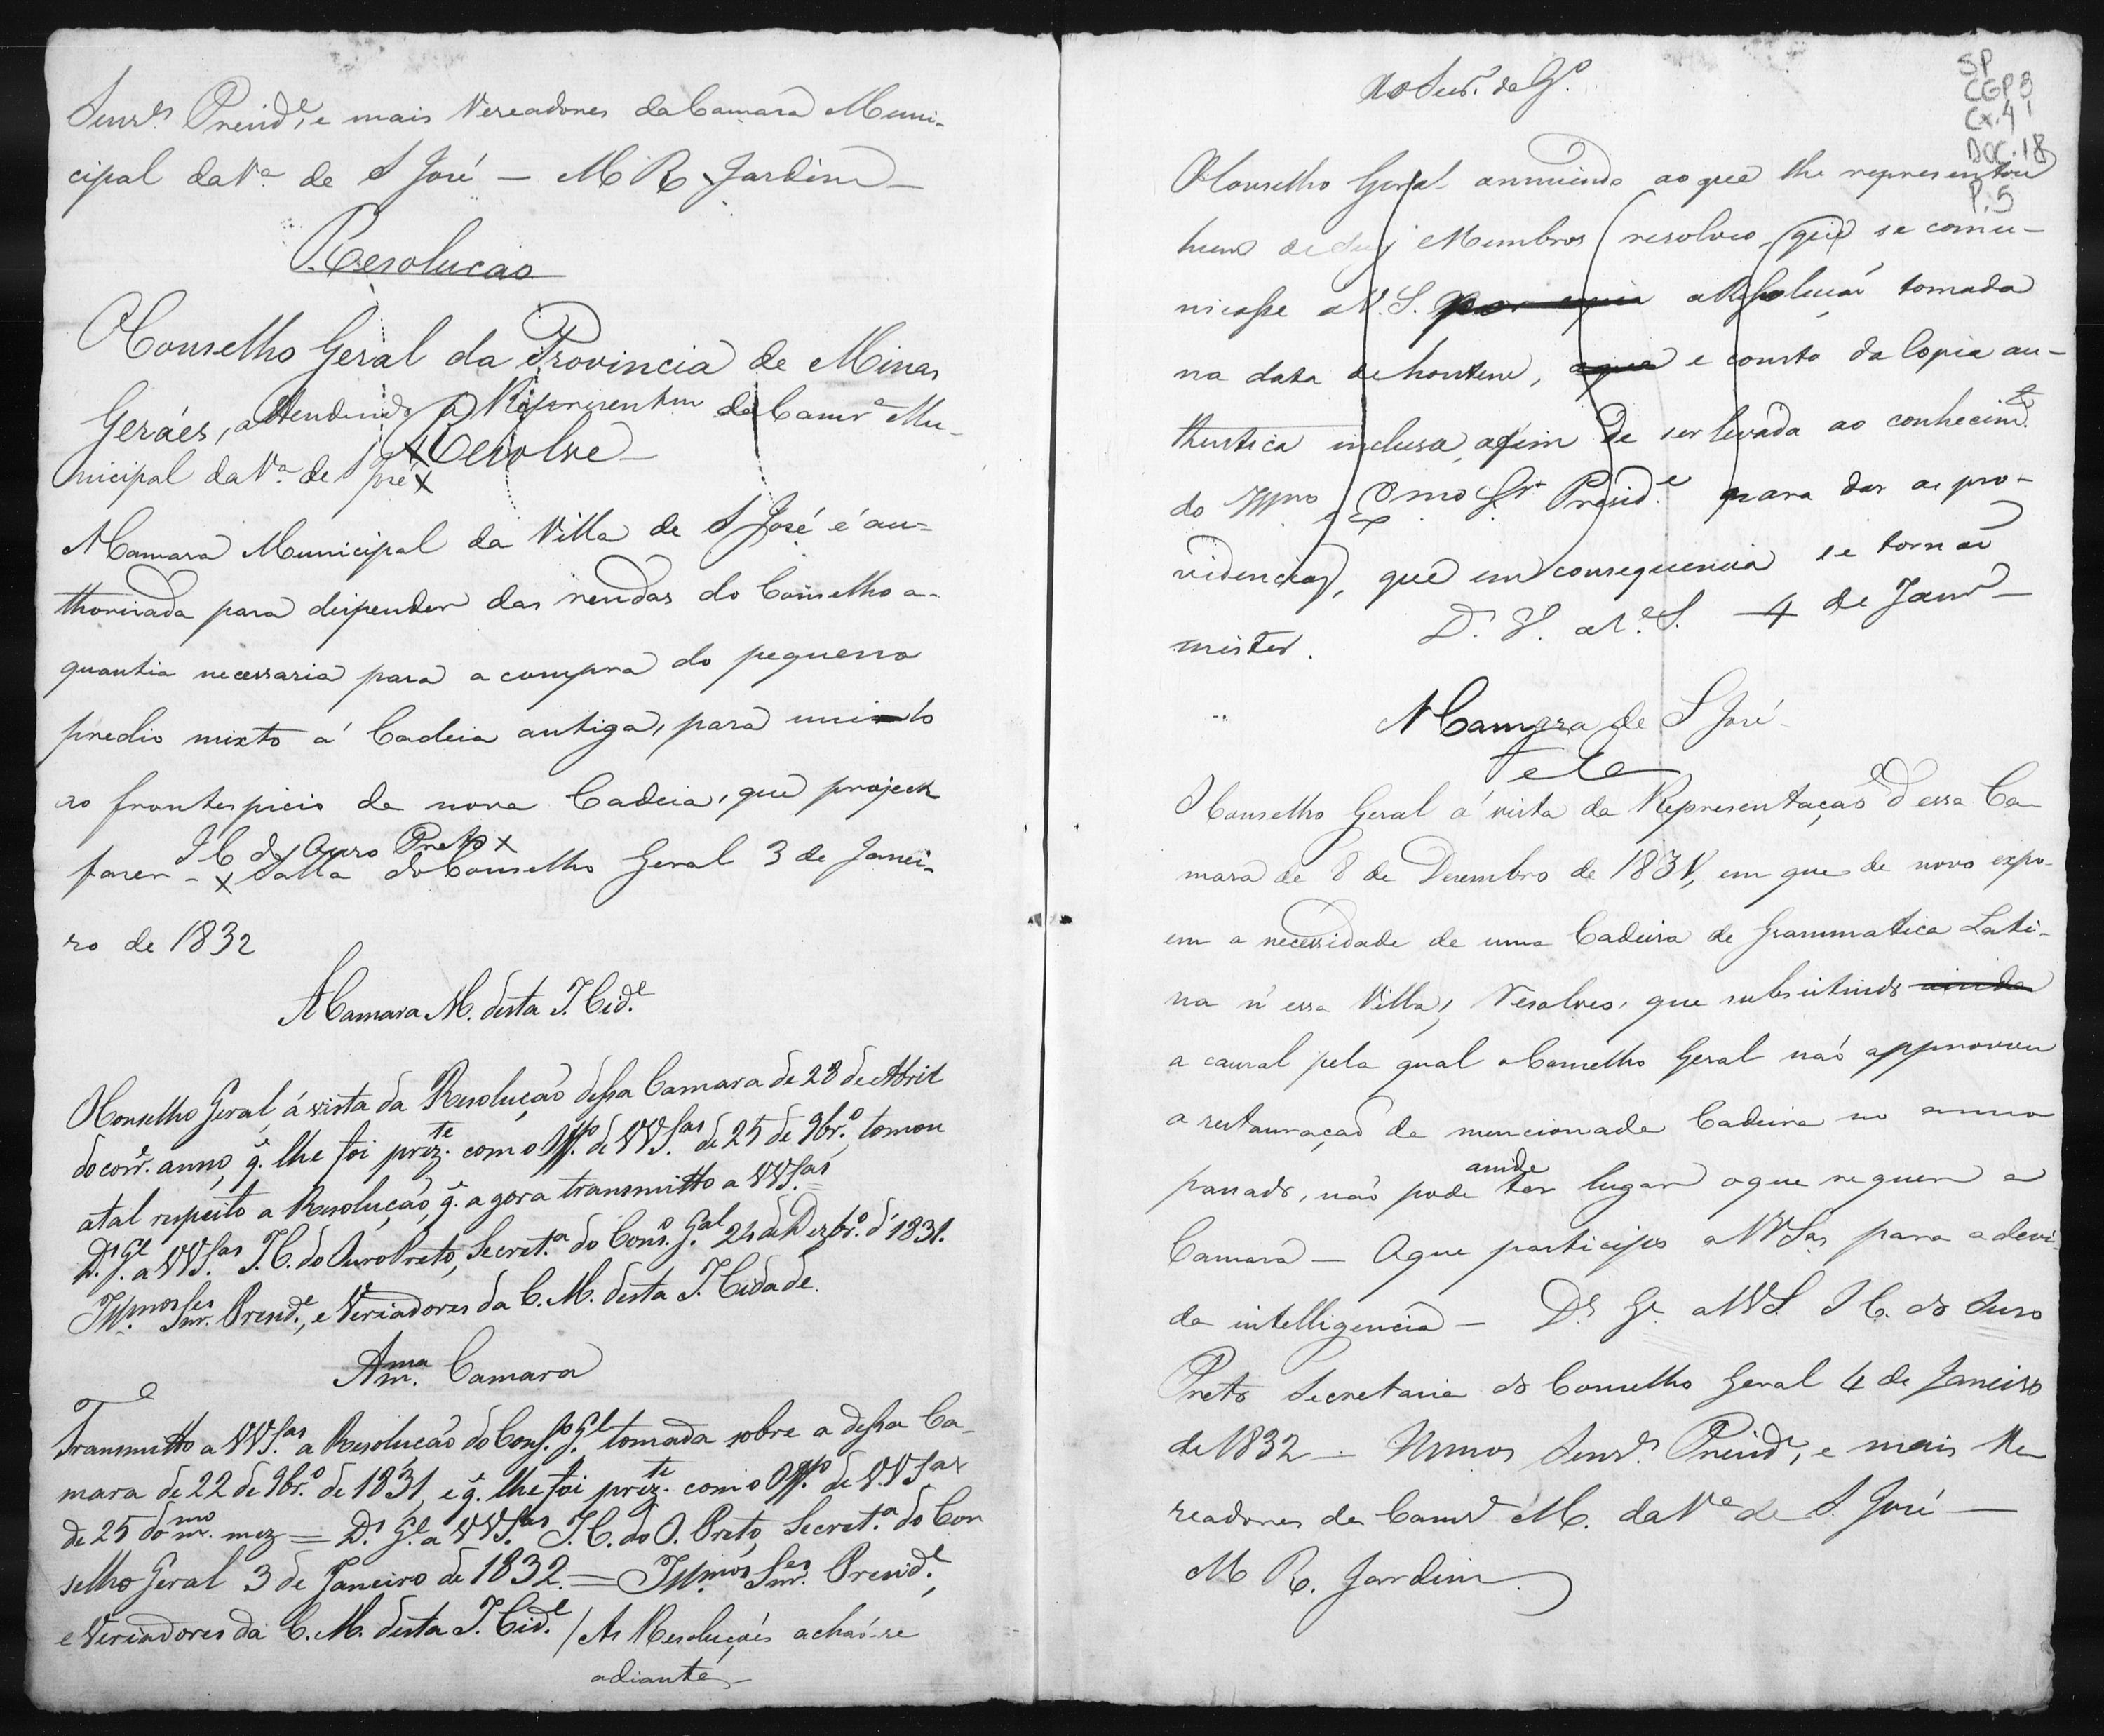 Senr.es Prezid.e, e mais Vereadores da Camara Muni-
cipal da V.a de S José — M R Jardim —
Resolucao
O Conselho Geral da Provincia de Minas
Geráes, attendendo á Representam da Camr.a Mu-
nicipal da V.a de S José x x Resolve —
A Camara Municipal da Villa de S José é au-
thorisada para dispender das rendas do Conselho a-
quantia necessaria para a compra do pequeno
predio mixto á Cadeia antiga, para
ao frontespicio da nova Cadeia, que project
I C do Ouro Preto x
fazer - x Salla do Conselho Geral 3 de Janei-
ro de 1832
Á Camara M. desta I. Cid.e
O Conselho Geral, á vista da Resolução dessa Camara de 28 de Abril
do corr.e anno, q. lhe foi prez.te com o Off.o de VVS.as de 25 de 9br.o, tomou
a tal respeito a Resolução, q. agora transmitto a VVS.as =
D.s G.e a VVS.as I. C. do Ouro Preto, Secret.a do Cons.o G.al 24 de Dezbr.o d' 1831.
Ill.mos Snr.es Prezid.e, e Veriadores da C. M. desta I. Cidade.
A m.ma Camara
Transmitto a VVS.as a Resolucão do Cons.o G.l tomada sobre a dessa Ca-
mara de 22 de 9br.o de 1831, e q. lhe foi prez.te com o Off.o de V.VS.as
de 25 do m.mo mez = D.s G.e a VVS.as I. C. do O. Preto, Secret.a do Con
selho Geral 3 de Janeiro de 1832. = Ill.mos Snr.es Prezid.e,
e Veriadores da C. M. desta I. Cid.e / As Resoluçoés acháo-se
adiante —
SP
CGP 3
Cx. 4
DOC. 18
P. 5
Ao Secr.o do G.o
O Conselho Geral annuindo ao que lhe representou
hum de seus Membros resolveo que se comu-
nicasse a V. S. por copia a Resolucáo tomada
na data de hontem, e consta da Copia au-
thentica inclusa, afim de ser levada ao conhecim.to
do Ill.mo e Ex.mo Sr. Prezid.e para dar as pro-
videncias, que em consequencia se tornáo
mister. D.s G. a V. S. 4 de Janr.o —
Á Camara de S José
O Conselho Geral á vista da Representação d'essa Ca-
mara de 8 de Dezembro de 1831, em que de novo expo-
em a necessidade de uma Cadeira de Grammatica Lati-
na n'essa Villa, Resolveo, que subsistindo ainda
a causal pela qual o Conselho Geral náo approvou
a restauração da mencionada Cadeira no anno
passado, náo pode ainda ter lugar o que requer a
Camara — O que participo a VVSas para a devi-
da intelligencia — D.s G.e a VVS I C. do Ouro
Preto Secretaria do Conselho Geral 4 de Janeiro
de 1832 — Senr.es Prezid.e, e mais Ve
readores da Camr.a M. da V.a de S. José —
M R. Jardim